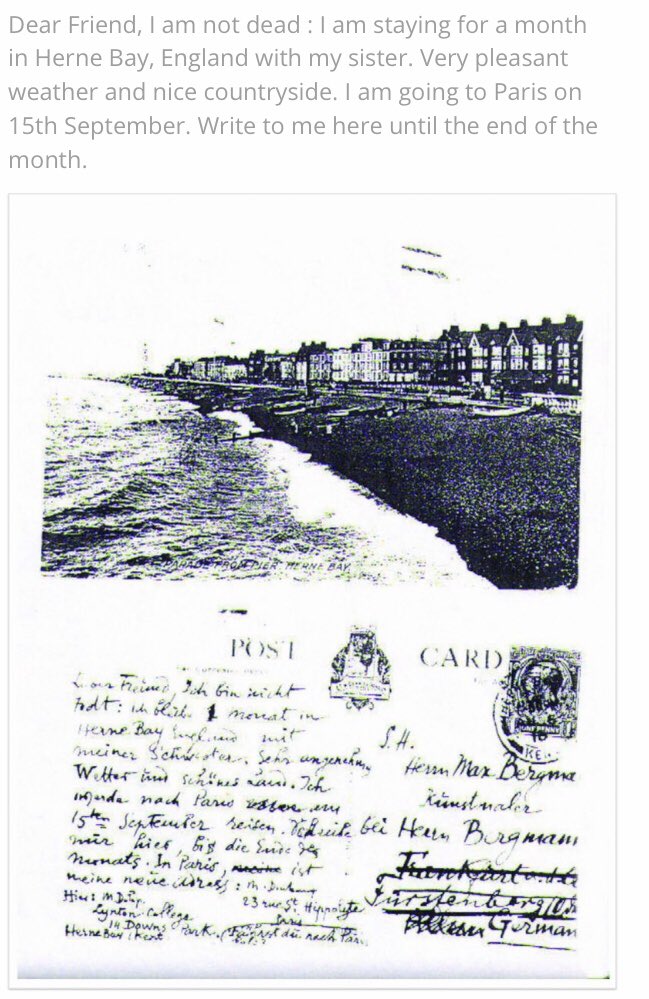 Dear Friend, I am not dead : I am staying for a month
in Herne Bay, England with my sister. Very pleasant
weather and nice countryside. I am going to Paris on
15th September. Write to me here until the end of the
month.
PARADE FROM PIER. HERNE BAY
POST CARD
Freund, Ich bin nicht
todt: ich bleibe 1 monat in
Herne Bay England mit
meiner Schwester. Sehr angenehm
Wetter und schönes Land. Ich
werde nach Paris am
15ten September reisen. Schreibe
mir hier, bis die Ende des
monats. In Paris, ist
meine neue adress: M. Duchamp
23 rue St. Hippolyte
Paris
Hier: M. Duchamp
Lynton College
14 Downs Park
Herne Bay Kent
nach Paris
ONE PENNY
S.H.
Herrn Max Bergma
Kunstmaler
bei Herrn Bergmann
Frankfurt
Fürstenberg
German